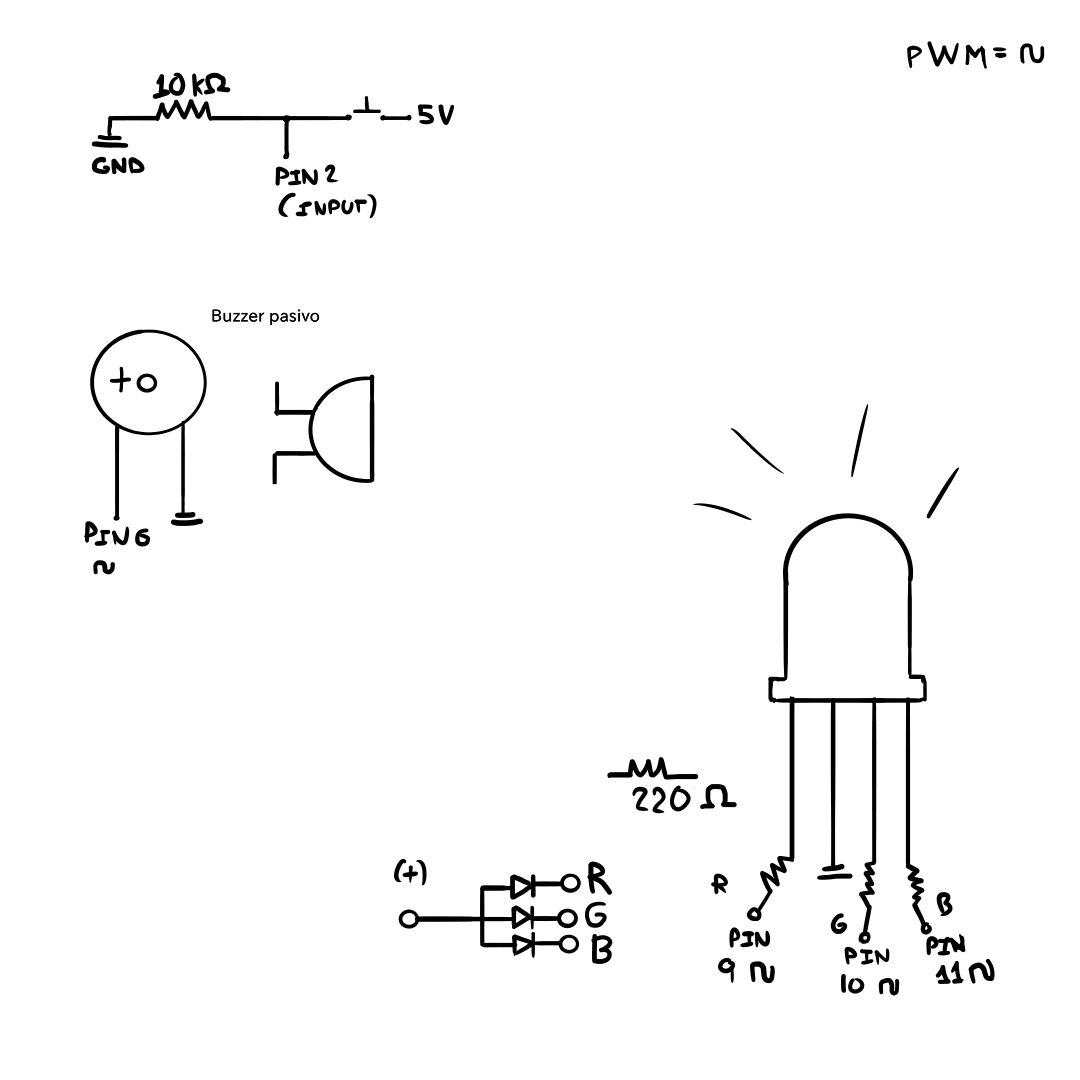 PWM= ~
10 kΩ
5V
GND
PIN 2
(INPUT)
Buzzer pasivo
+
PIN 6
~
220 Ω
(+)
R
G
B
R
G
B
PIN
9 ~
PIN
10 ~
PIN
11 ~